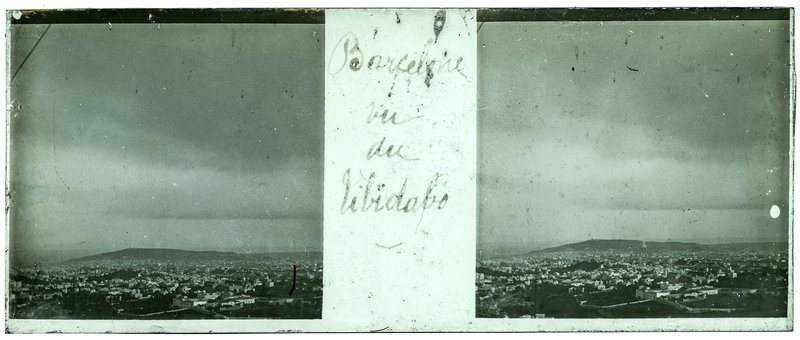 Barcelone
vu
du
Tibidabo